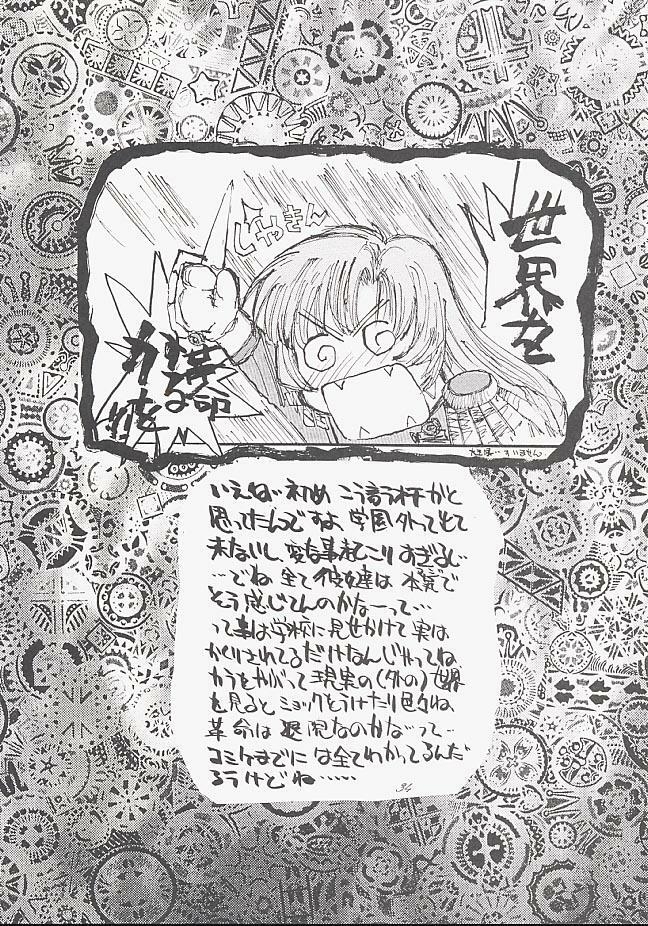 世界を
じゃきん
革命
する
力を
すいません
いえね 初め こう言う所かと
思ってたんですよ 学園外って出て
来ないし、変な事起こりすぎるし…
…でね 全て彼女達は 本気で
そう感じてんのかなーって…
って事は学校に見せかけて実は
かくりされてるだけなんじゃってね
カラをやぶって現実の(外の)世界
を見ると ショックをうけたり色々ね、
革命は 退院なのかなって…
コミケまでには全てわかってるんだ
ろうけどね……
34